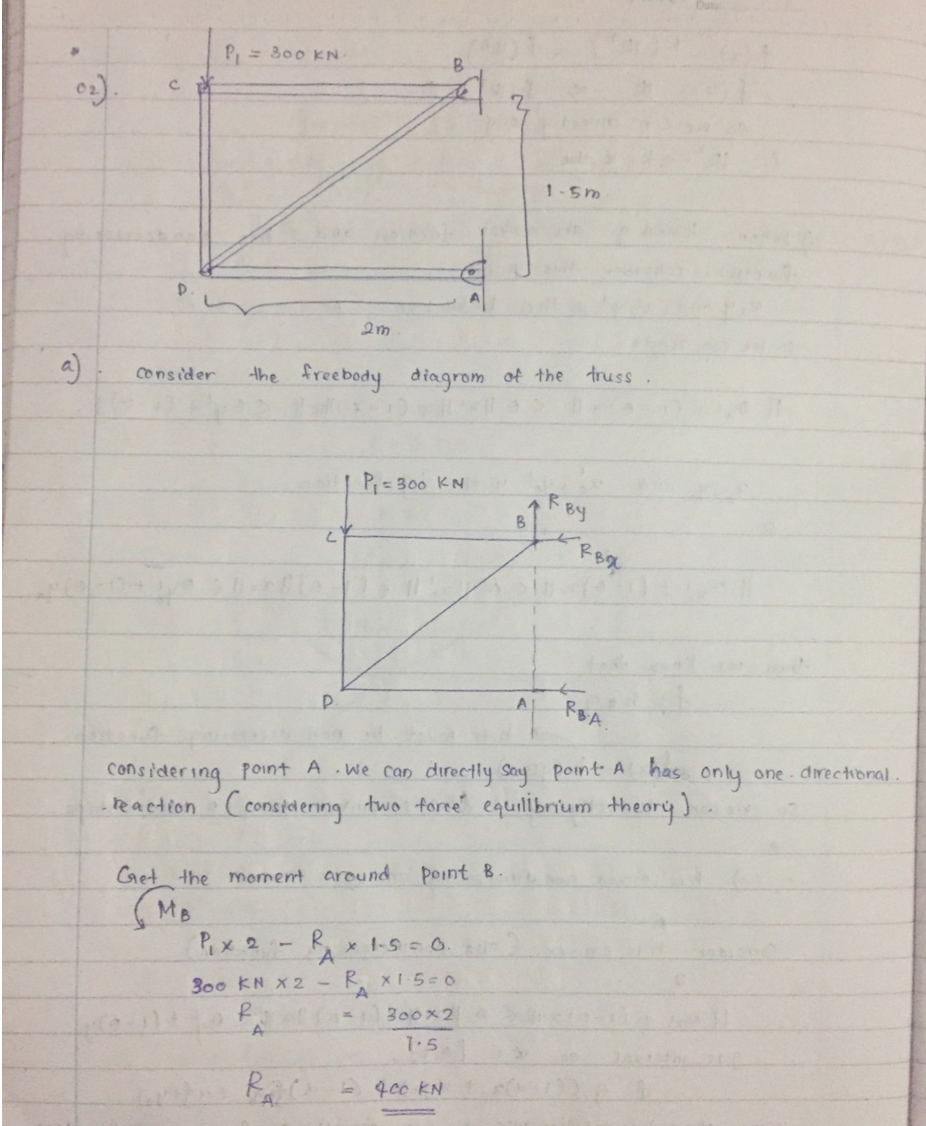 Date:
02).
P1 = 300 KN.
C
B
1.5m
D.
A
2m
a).
consider the freebody diagram of the truss.
P1 = 300 KN
RBy
B
C
RBx
D
A
RBA
considering point A. We can directly say point A has only one directional.
reaction (considering two force equilibrium theory).
Get the moment around point B.
MB
P1 x 2 - RA x 1.5 = 0.
300 KN x 2 - RA x 1.5 = 0
RA = 300 x 2
1.5
RA = 400 KN